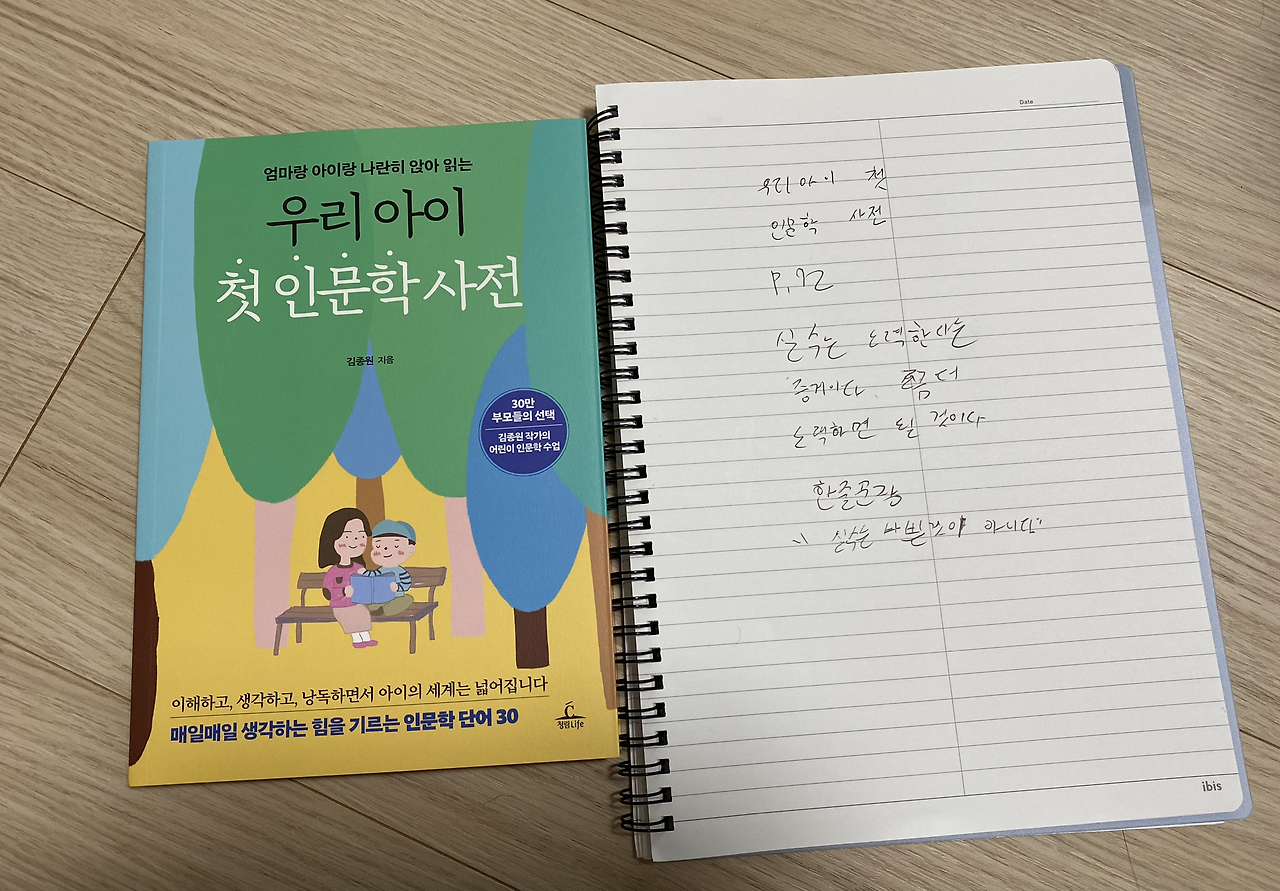 엄마랑 아이랑 나란히 앉아 읽는
우리 아이
첫 인문학 사전
김종원 지음
30만
부모들의 선택
김종원 작가의
어린이 인문학 수업
이해하고, 생각하고, 낭독하면서 아이의 세계는 넓어집니다
매일매일 생각하는 힘을 기르는 인문학 단어 30
청림Life
Date
우리 아이 첫
인문학 사전
P.72
실수는 노력한다는
증거이다 좀 더
노력하면 될 것이다
한줄문장
" 실수는 나쁜것이 아니다"
ibis